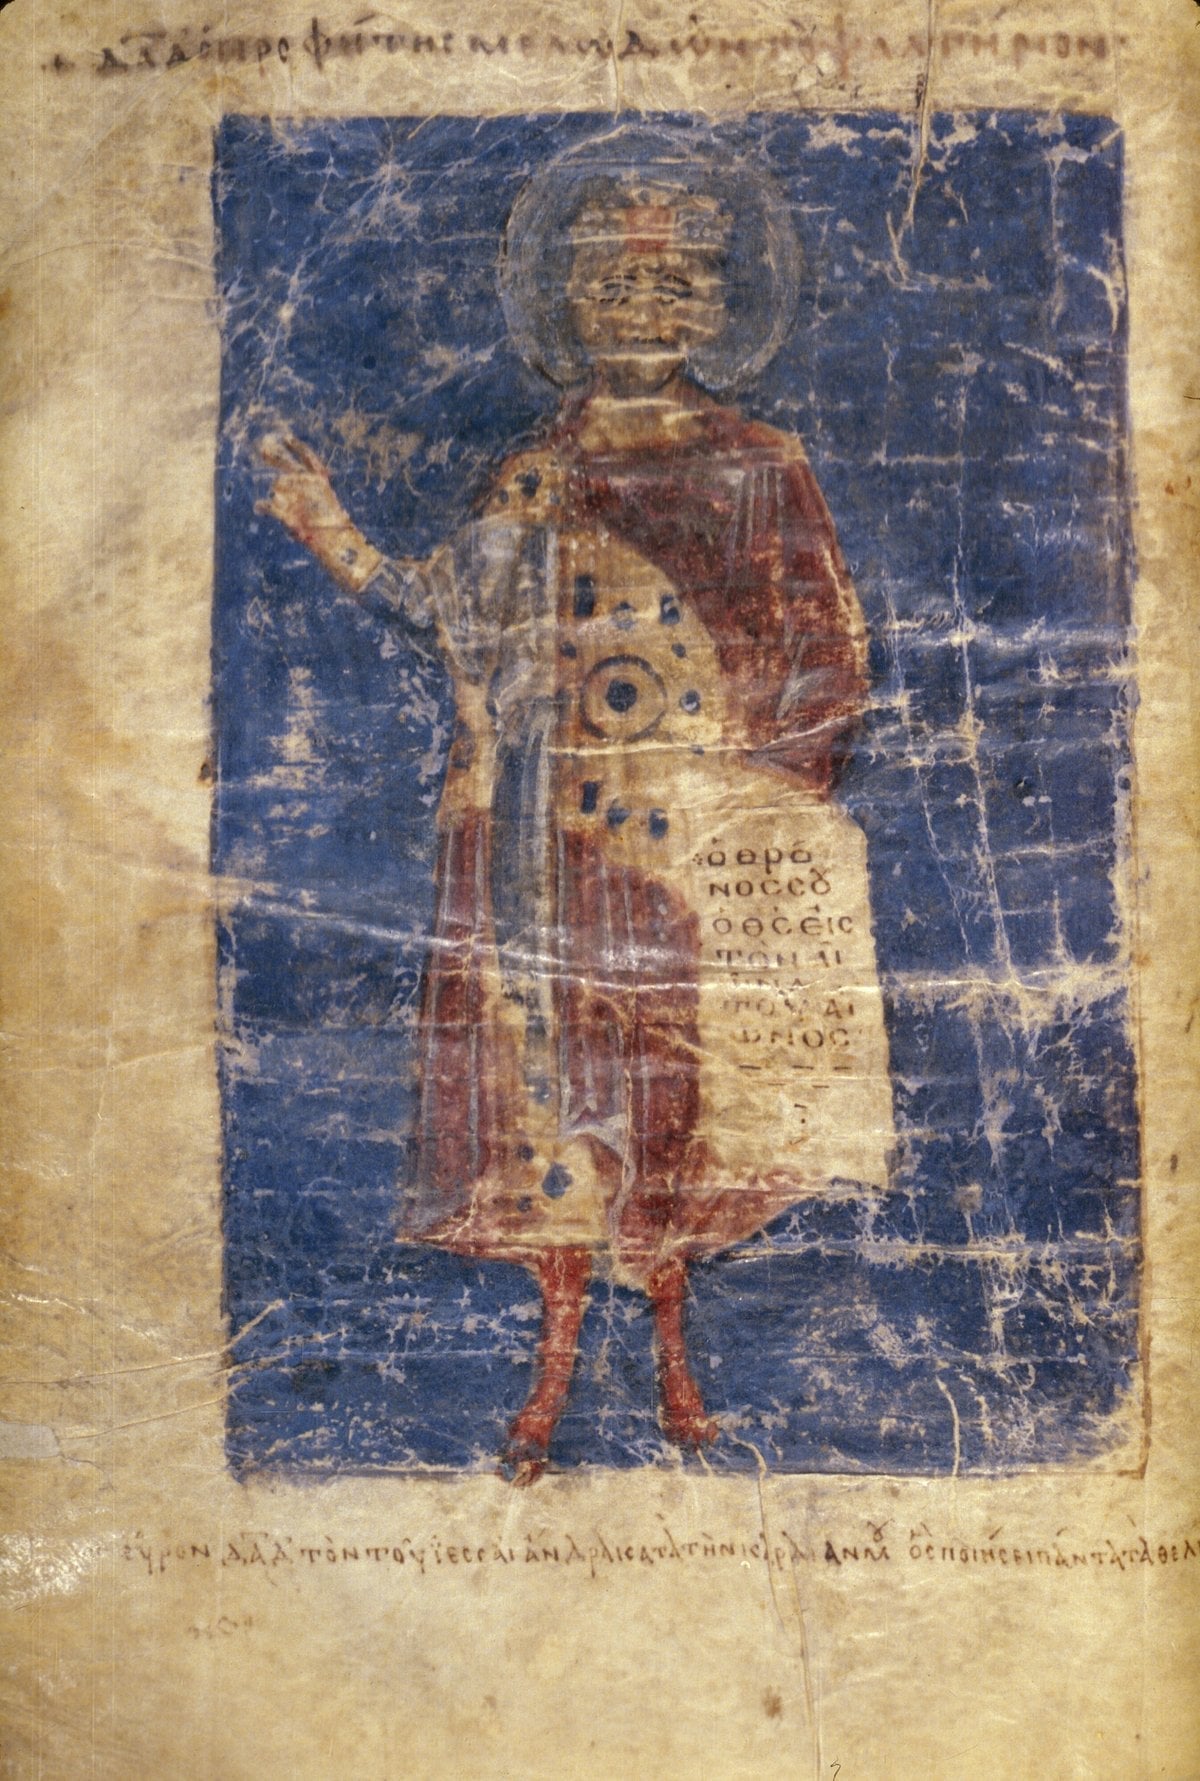 + δᾱδ ὁ προφήτης μελωδῶν τὸ ψαλτήριον
ὁ θρό
νος σȣ
ὁ θ̅ς εἰς
τὸν αἰ
ῶνα
τοῦ αἰ
ῶνος
εὗρον δᾱδ τὸν τοῦ ϊεσσαὶ ἄνδρα κατὰ τὴν καρδίαν μȣ ὃς ποιήσει πάντα τὰ θελή